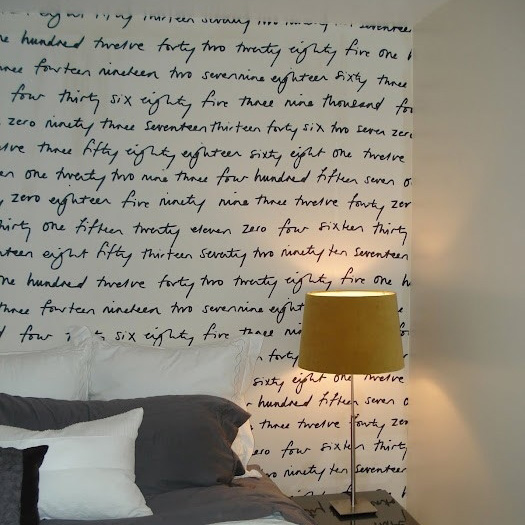 eight fifty thirteen seventy two
one hundred twelve forty two twenty eighty five one
three fourteen nineteen two sevennine eighteen sixty three
four thirty six eighty five three nine thousand
zero ninety three seventeen thirteen forty six two seven zero
three fifty eighty eighteen sixty eight one twelve
one twenty two nine three four hundred fifteen seven
zero eighteen five ninety nine three twelve forty
one fifteen twenty eleven zero four sixteen thirty
eight fifty thirteen seventy two ninety ten seventeen
one hundred twelve forty two twenty eighty five one
three fourteen nineteen two sevennine
four six eighty five three
forty
sixty eight one twelve
hundred fifteen seven
three twelve forty
four sixteen thirty
two ninety ten seventeen